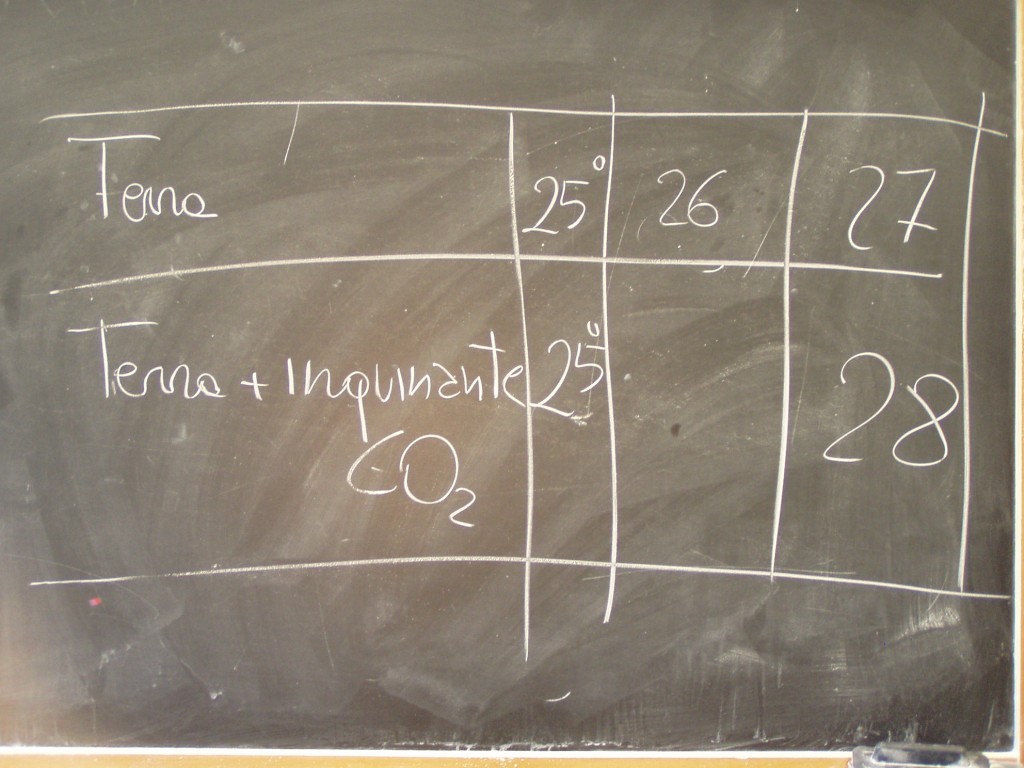 Terra 25° 26 27
Terra + Inquinante 25° 28
CO₂